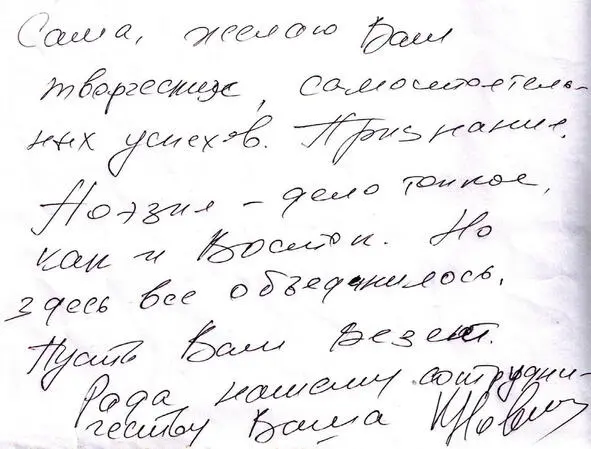 Саша, желаю Вам
творческих, самостоятель-
ных успехов. Признания.
Поэзия – дело тонкое,
как и Восток. Но
здесь все объединилось.
Пусть Вам везет.
Рада нашему сотрудни-
честву Ваша